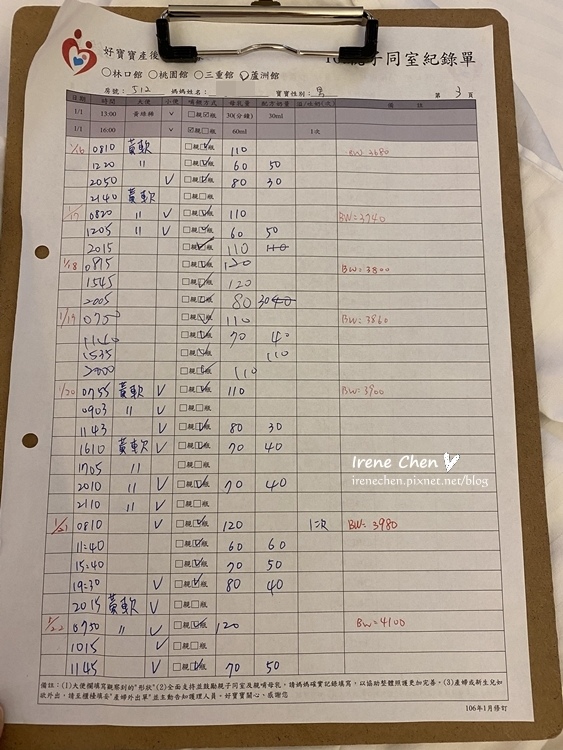 好寶寶產後
親子同室紀錄單
○林口館 ○桃園館 ○三重館 ○蘆洲館
房號: 512 媽媽姓名: 寶寶性別: 男 第 3 頁
日期 時間 大便 小便 哺餵方式 母乳量 配方奶量 溢/吐奶(次) 備 註
1/1 13:00 黃糊糊 v □親☑瓶 30(分鐘) 30ml
1/1 16:00 v ☑親□瓶 60ml 1次
1/16 0810 黃軟 □親☑瓶 110 BW 3680
1220 〃 □親☑瓶 60 50
2050 V □親☑瓶 80 30
2140 黃軟 □親□瓶
1/17 0820 〃 V □親☑瓶 110 BW=3740
1205 〃 V □親☑瓶 60 50
2015 □親☑瓶 110 110
1/18 0815 □親☑瓶 120 BW=3800
1545 □親☑瓶 120
2005 □親☑瓶 80 30 40
1/19 075 □親☑瓶 110 BW=3860
1140 □親☑瓶 70 40
1535 □親☑瓶 110
2000 □親☑瓶 110
1/20 0755 黃軟 V □親☑瓶 110 BW=3900
0903 〃 V □親□瓶
1143 V □親☑瓶 80 30
1610 黃軟 V □親☑瓶 70 40
1705 〃 □親□瓶
2010 〃 V □親☑瓶 70 40
2110 〃 V □親□瓶
1/21 0810 V □親☑瓶 120 1次 BW=3980
11:40 □親☑瓶 60 60
15:40 □親☑瓶 70 50
19:30 V □親☑瓶 80 40
2015 黃軟 V □親□瓶
1/22 0750 〃 V □親☑瓶 120 BW=4100
1015 V □親□瓶
1145 V □親☑瓶 70 50
Irene Chen
irenechen.pixnet.net/blog
備註:(1)大便欄填寫觀察到的"形狀"(2)全面支持並鼓勵親子同室及親哺母乳,請媽媽確實記錄填寫,以協助整體照護更加完善。(3)產婦或新生兒如
欲外出,請至櫃檯填妥"產婦外出單"並主動告知護理人員。好寶寶關心、感謝您
106年1月修訂